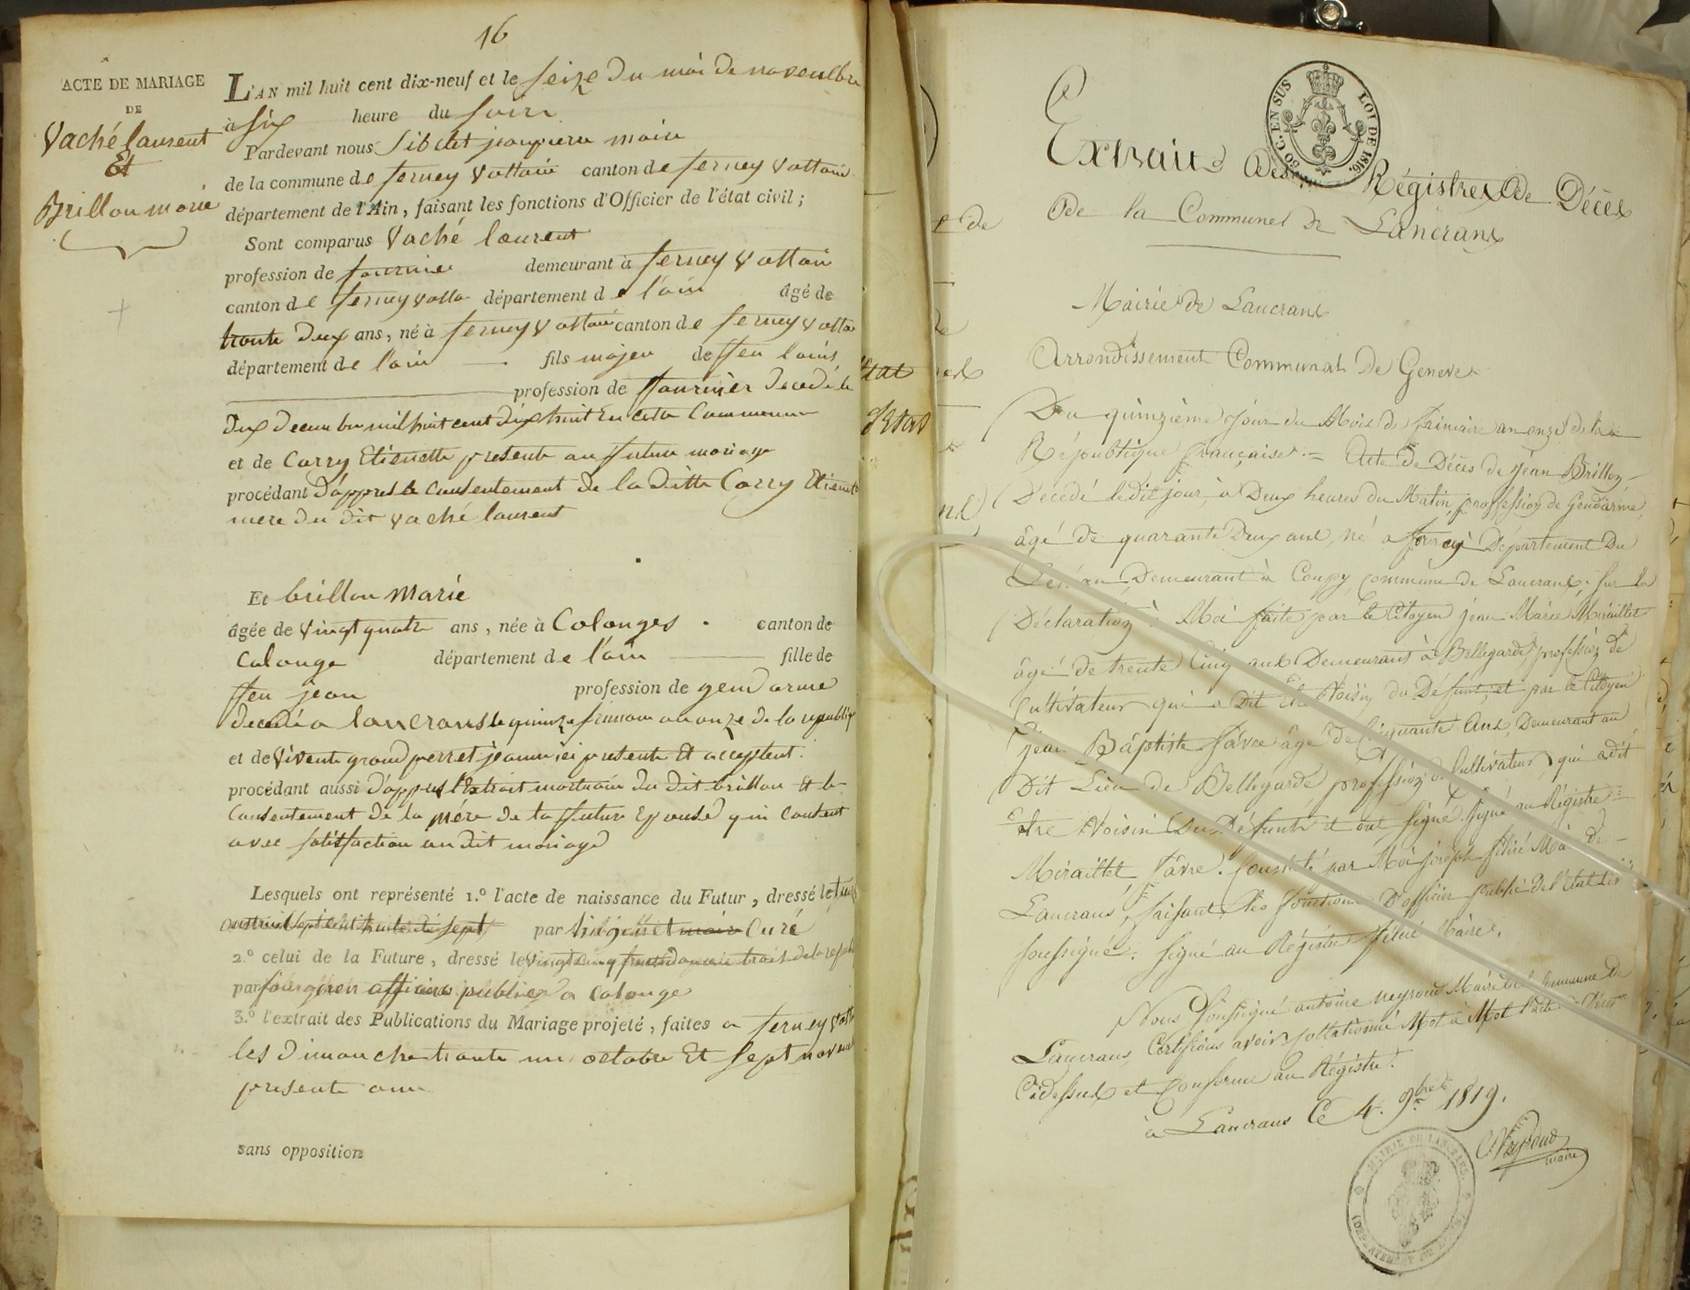 16
ACTE DE MARIAGE
DE
Vaché laurent
Et
Brillon marie
L'AN mil huit cent dix-neuf et le seize du mois de novembre
à six heure du soir
Pardevant nous maire
de la commune de ferney voltaire canton de ferney voltaire
département de l'Ain, faisant les fonctions d'Officier de l'état civil;
Sont comparus Vaché laurent
profession de fournier demeurant à ferney voltair
canton de ferney volta département de l'ain âgé de
trente deux ans, né à ferney voltair canton de ferney volta
département de l'ain fils majeu de ffeu louis
profession de ffournier decedé le
dix decembre mil huit cent dix huit en cette commune
et de Carry Etienette presente au futur mariage
procédant d'appres le consentement de la ditte Carry Etienette
mere du dit vaché laurent
Et brillon Marie
âgée de vingt quatre ans, née à Colonges canton de
Colonge département de l'ain fille de
ffeu jean profession de gendarme
decedé a lancrans le quinze frimaire an onze de la republiq
et de vivente grand perret jeanne ici presente et acceptent
procédant aussi d'appres l'Extrait mortuaire du dit brillon et le
Consentement de la mére de la ffuture Epouse qui consent
avec satisfaction au dit mariage
Lesquels ont représenté 1.º l'acte de naissance du Futur, dressé le
par Curé
2.º celui de la Future, dressé le vingt cinq
par officier public a Colonge
3.º l'extrait des Publications du Mariage projeté, faites a ferney volt
les dimanche trente un octobre Et sept novem
presente anne
sans opposition
50 C. EN SUS
LOI DE 1816
Extrait des Régistres de Décès
de la Commune de Lancrans
Mairie de Lancrans
Arrondissement Communal de Geneve
Du quinzième Jour du Mois de frimaire an onze de la
République française. = Acte de Décès de jean Brillon
Décédé ledit jour, à Deux heures du Matin, proffession de Gendarme
âgé de quarante Deux ans, né a ferney Département Du
Léman Demeurant à Coupy commune de Lancrans, sur la
Déclaration à Moi faite par le Citoyen jean Marie Miraillet
âgé de trente Cinq ans Demeurant à Bellegarde proffession de
Cultivateur qui a Dit Etre Voisin du Défunt, et par le Citoyen
jean Baptiste favre âgé de Cinquante Ans, Demeurant au
Dit Lieu de Bellegarde proffession de Cultivateur qui a dit
Etre Voisin Du Défunt et ont signé. Signé au Régistre =
Miraillet, favre. Constaté par Moi joseph filiué Maire de
Lancrans, faisant les fonctions D'officier public de l'état Civil
soussigné. Signé au Régistre filiué Maire.
Nous Soussigné antoine neyroud Maire de la Commune de
Lancrans, Certifions avoir collationné Mot à Mot l'acte de Décès
Cidessus et Conforme au Régistre.
à Lancrans le 4. 9bre 1819.
Neyroud
maire
MAIRIE DE LANCRANS